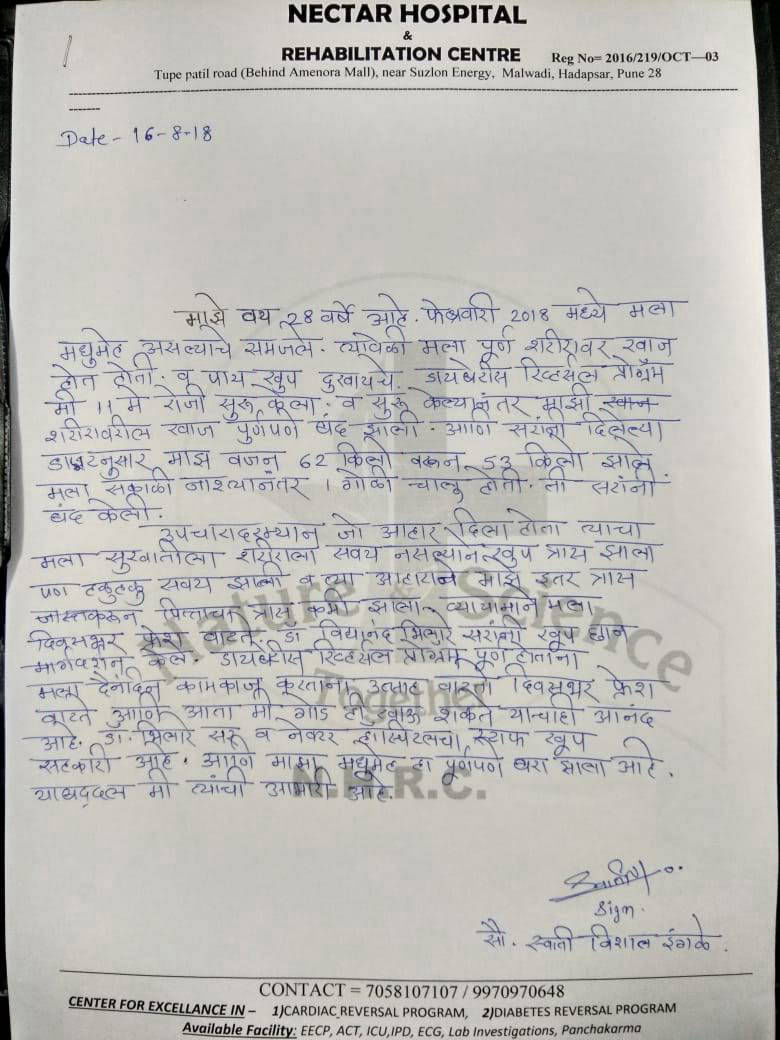 1
NECTAR HOSPITAL
&
REHABILITATION CENTRE Reg No= 2016/219/OCT—03
Tupe patil road (Behind Amenora Mall), near Suzlon Energy, Malwadi, Hadapsar, Pune 28
Date - 16-8-18
माझे वय 28 वर्षे आहे. फेब्रुवारी 2018 मध्ये मला
मधुमेह असल्याचे समजले. त्यावेळी मला पूर्ण शरीरावर खाज
होत होती. व पाय खुप दुखायचे. डायबेटीस रिव्हर्सल प्रोग्रॅम
मी 11 मे रोजी सुरू केला. व सुरू केल्यानंतर माझी खाज
शरीरावरील खाज पुर्णपणे बंद झाली. आणि सरांनी दिलेल्या
डाएटनुसार माझे वजन 62 किलो वरून 53 किलो झाले.
मला सकाळी नाश्त्यानंतर 1 गोळी चालू होती. ती सरांनी
बंद केली.
उपचारादरम्यान जो आहार दिला होता त्याचा
मला सुरवातीला शरीराला सवय नसल्याने खुप त्रास झाला
पण हळुहळु सवय झाली व त्या आहाराने माझे इतर त्रास
जास्तकरून पित्ताचा त्रास कमी झाला. व्यायामाने मला
दिवसभर फ्रेश वाटते. डॉ विद्यानंद भिलारे सरांनी खूप छान
मार्गदर्शन केले. डायबेटीस रिव्हर्सल प्रोग्रॅम पूर्ण होताना
मला दैनंदिन कामकाज करताना उत्साह वाटतो दिवसभर फ्रेश
वाटते आणि आता मी गोड ही खाऊ शकते याचाही आनंद
आहे. डॉ. भिलारे सर व नेक्टर हॉस्पिटलचा स्टाफ खूप
सहकारी आहे. आणि माझा मधुमेह हा पूर्णपणे बरा झाला आहे.
याबद्दल मी त्यांची आभारी आहे.
Nature & Science
Together
N.H.R.C.
Sign.
सौ. स्वाती विशाल इंगळे.
CONTACT = 7058107107 / 9970970648
CENTER FOR EXCELLENCE IN – 1)CARDIAC REVERSAL PROGRAM, 2)DIABETES REVERSAL PROGRAM
Available Facility: EECP, ACT, ICU,IPD, ECG, Lab Investigations, Panchakarma